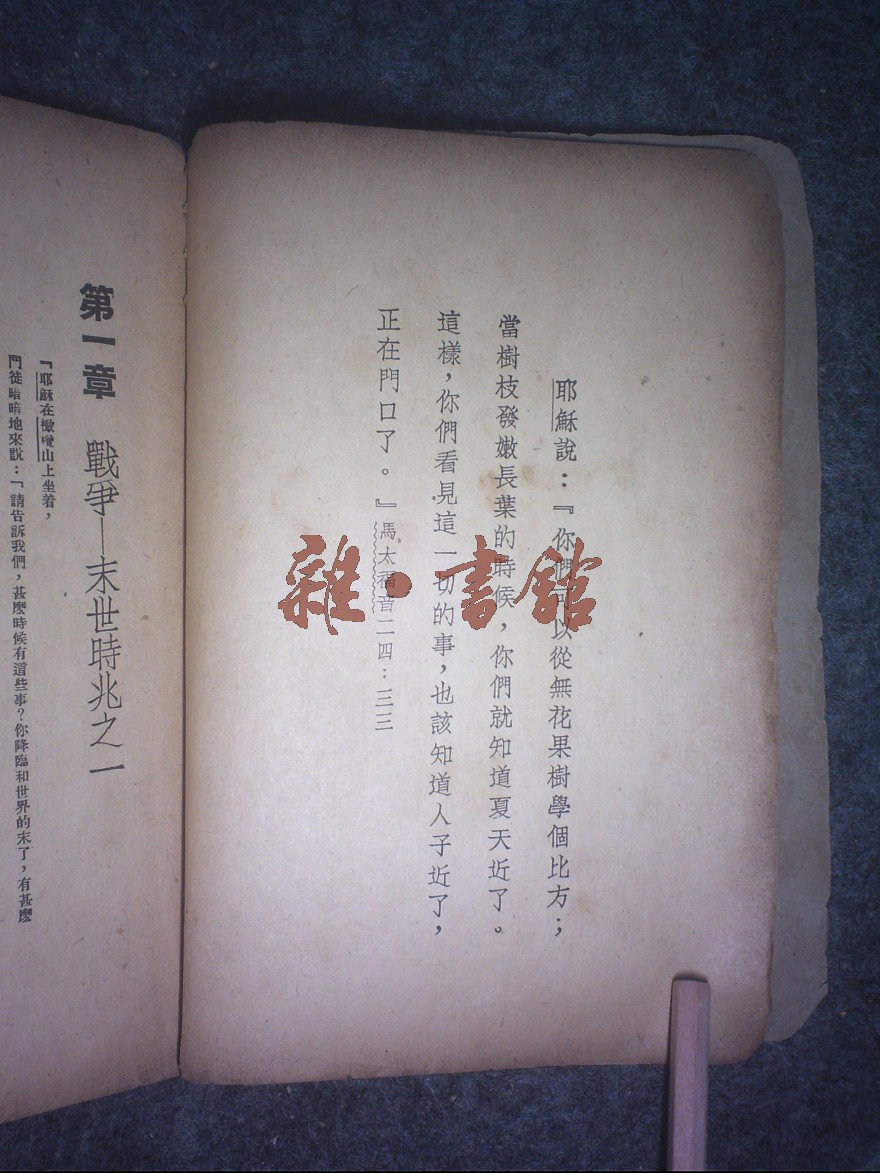 耶穌說：『你們可以從無花果樹學個比方；
當樹枝發嫩長葉的時候，你們就知道夏天近了。
這樣，你們看見這一切的事，也該知道人子近了，
正在門口了。』馬太福音二四：三三
第一章 戰爭—末世時兆之一
『耶穌在橄欖山上坐着，
門徒暗暗地來說：「請告訴我們，甚麼時候有這些事？你降臨和世界的末了，有甚麼
雜·書館